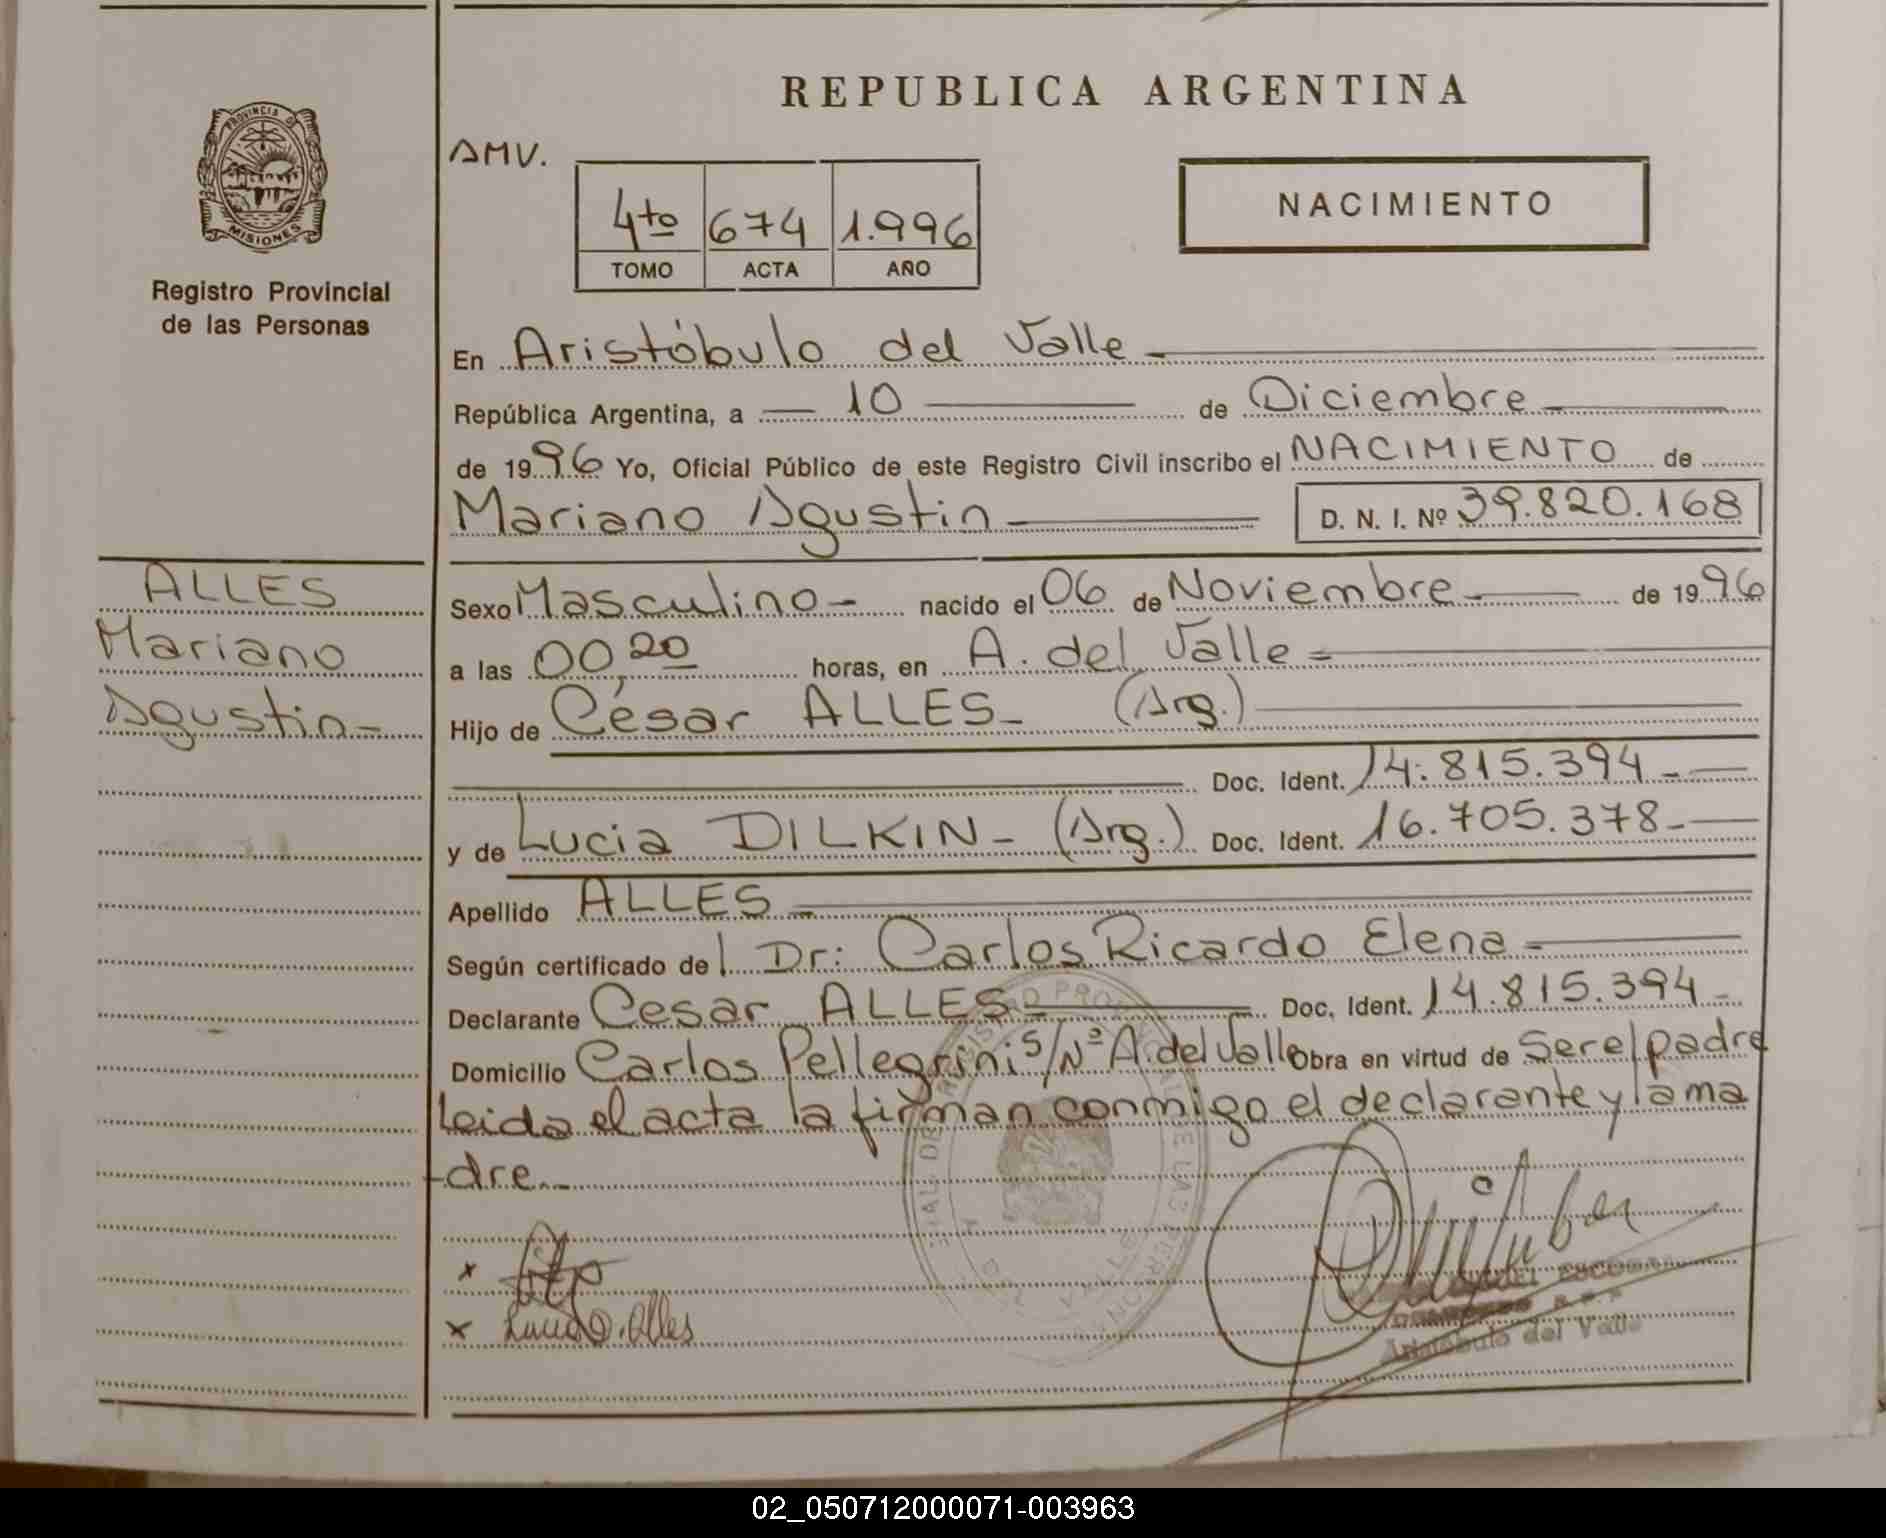 REPUBLICA ARGENTINA
PROVINCIA DE MISIONES
Registro Provincial
de las Personas
AMV.
4to 674 1.996
TOMO ACTA AÑO
NACIMIENTO
En Aristóbulo del Valle
República Argentina, a 10 de Diciembre
de 1996 Yo, Oficial Público de este Registro Civil inscribo el NACIMIENTO de
Mariano Agustin D. N. I. Nº 39.820.168
ALLES
Mariano
Agustin
Sexo Masculino nacido el 06 de Noviembre de 1996
a las 00,20 horas, en A. del Valle
Hijo de César ALLES (Arg.)
Doc. Ident. 14.815.394
y de Lucia DILKIN (Arg.) Doc. Ident. 16.705.378
Apellido ALLES
Según certificado del Dr: Carlos Ricardo Elena
Declarante Cesar ALLES Doc. Ident. 14.815.394
Domicilio Carlos Pellegrini s/Nº A. del Valle Obra en virtud de ser el padre
Leida el acta la firman conmigo el declarante y la ma
-dre
x
x Lucia D. Alles
Aristobulo del Valle
02_050712000071-003963